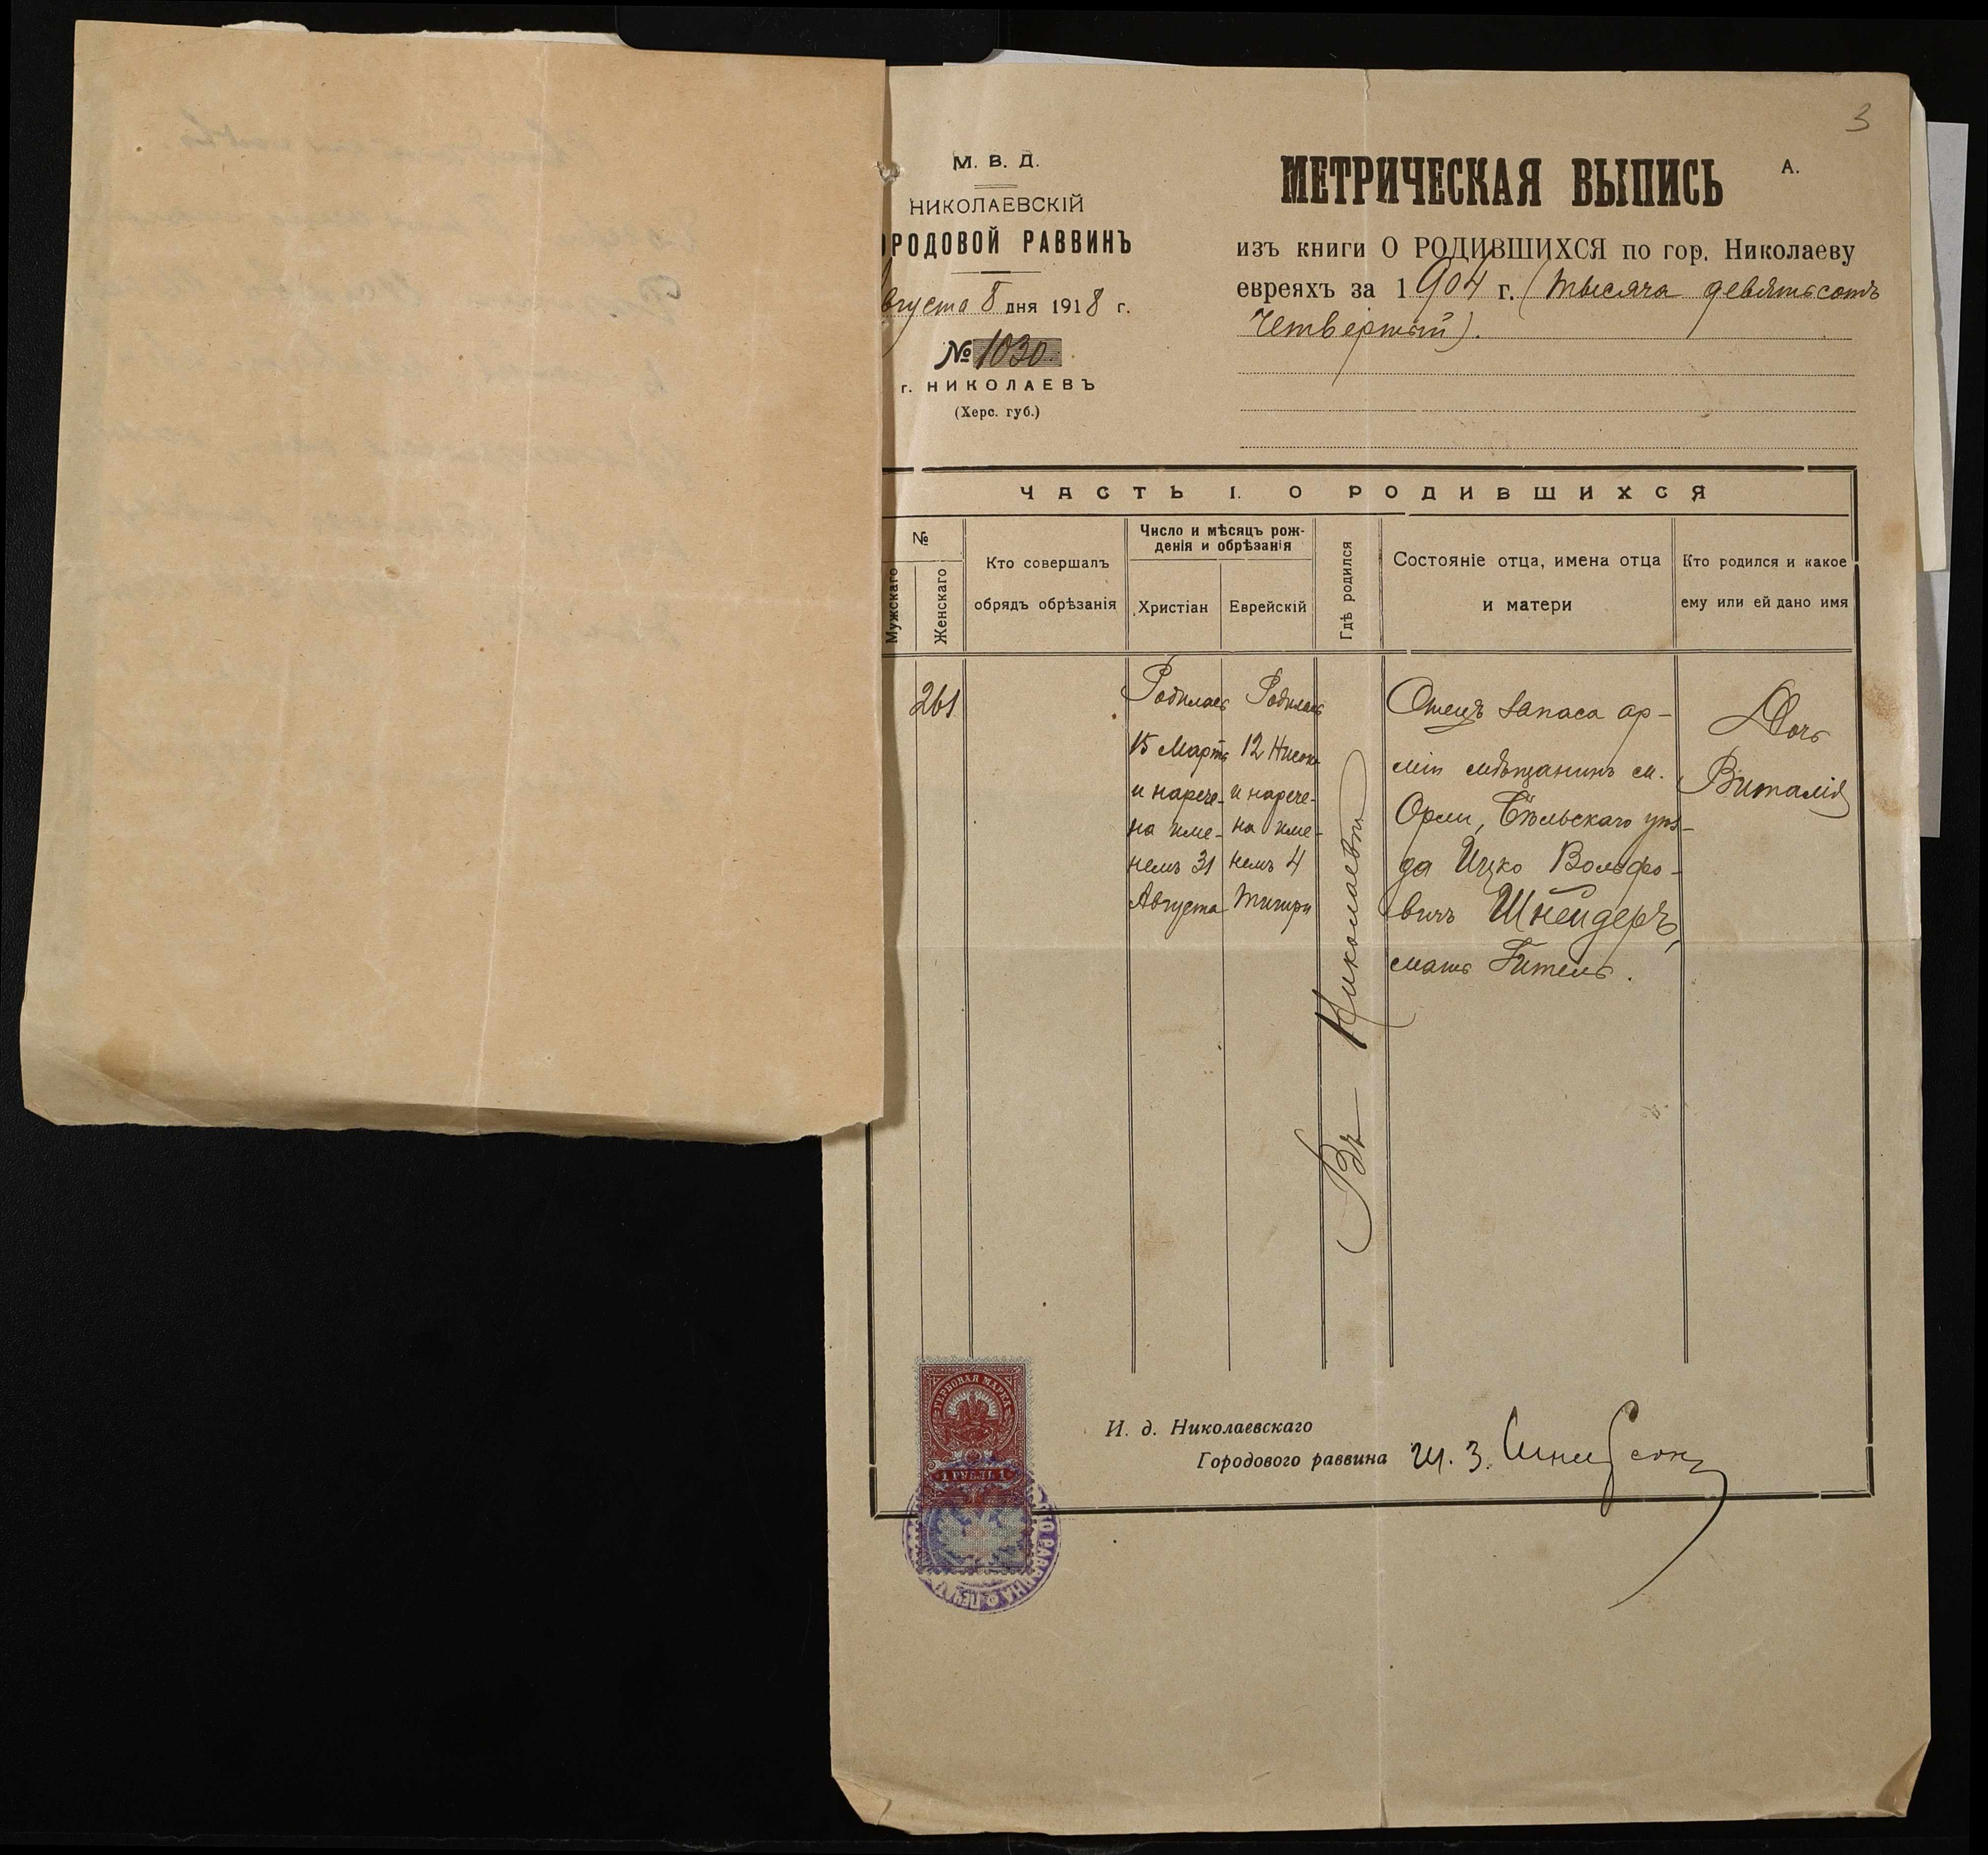 3
М. В. Д.
НИКОЛАЕВСКІЙ
РОДОВОЙ РАВВИНЪ
вгуста 8 дня 1918 г.
№ 1030
г. НИКОЛАЕВЪ
(Херс. губ.)
МЕТРИЧЕСКАЯ ВЫПИСЬ
А.
изъ книги О РОДИВШИХСЯ по гор. Николаеву
евреяхъ за 1904 г. (тысяча девятьсотъ
четвертый).
ЧАСТЬ I. О РОДИВШИХСЯ
№
Мужскаго
Женскаго
Кто совершалъ
обрядъ обрѣзанія
Число и мѣсяцъ рож-
денія и обрѣзанія
Христіан
Еврейскій
Гдѣ родился
Состояніе отца, имена отца
и матери
Кто родился и какое
ему или ей дано имя
261
Родилась
15 Марта
и нарече-
на име-
немъ 31
Августа
Родилась
12 Нисона
и нарече-
на име-
немъ 4
Тишри
Въ Николаевѣ
Отецъ запаса ар-
міи мѣщанинъ м.
Орли, Бѣльскаго уѣз-
да Ицко Вольфо-
вичъ Шнейдеръ,
мать Гитель.
Дочь
Виталія
ГЕРБОВАЯ МАРКА
1 РУБЛЬ 1
И. д. Николаевскаго
Городового раввина Ш. З.